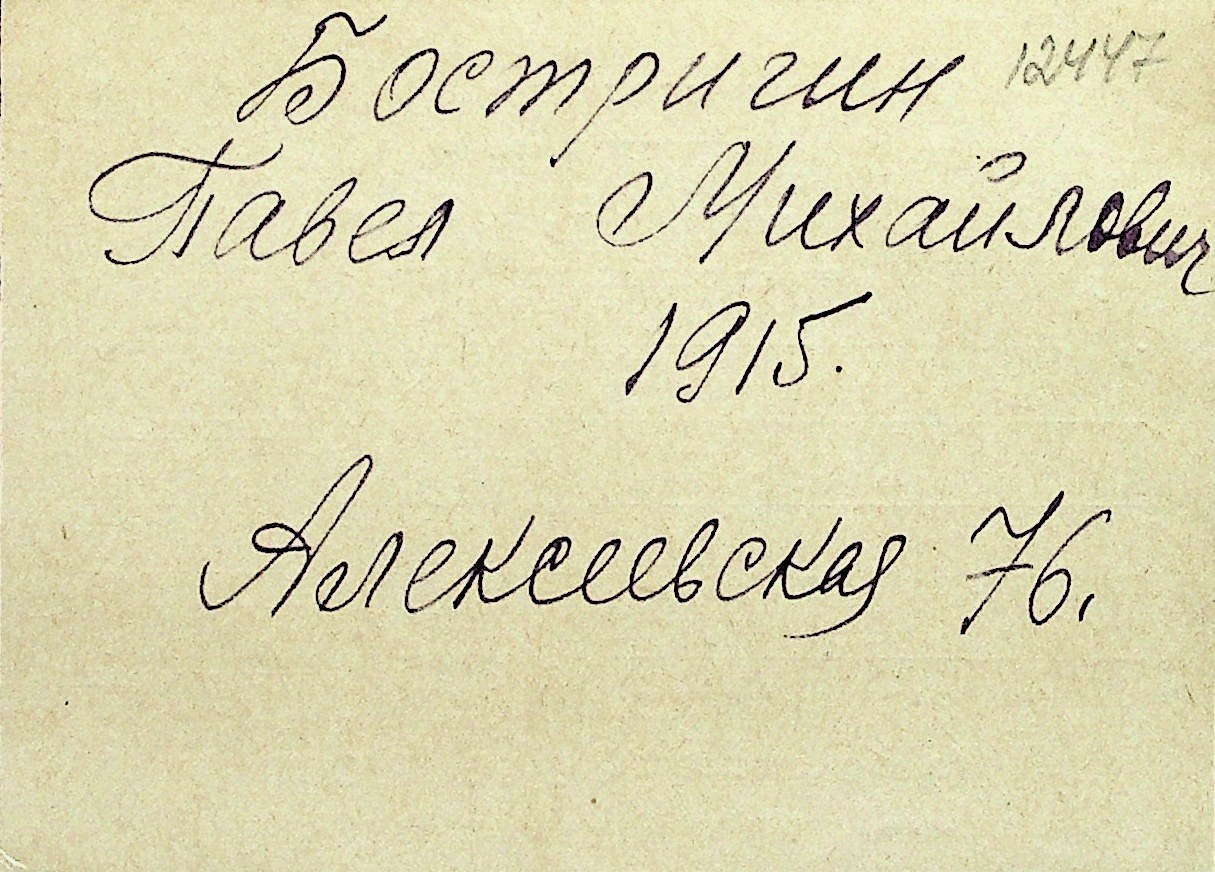 Бостригин 12447
Павел Михайлович
1915.
Алексеевская 76.